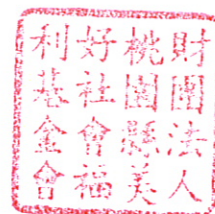 財團法人
桃園縣美
好社會福
利基金會